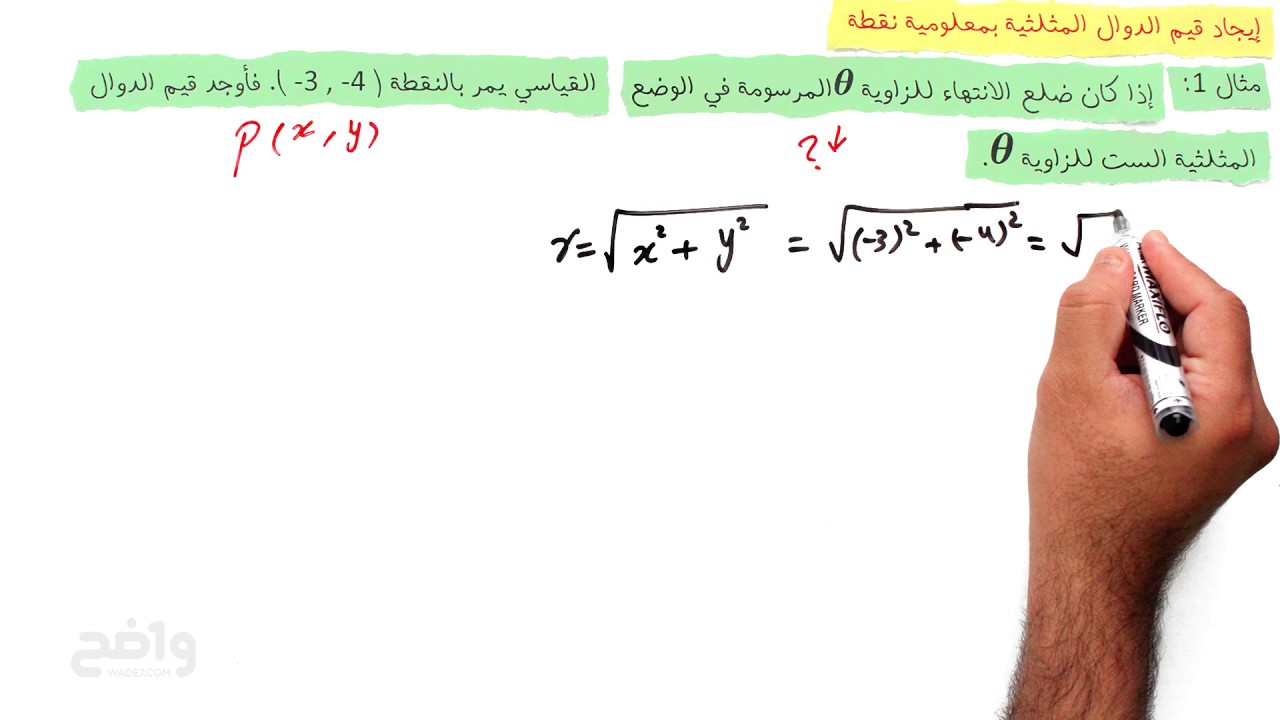 إيجاد قيم الدوال المثلثية بمعلومية نقطة
مثال 1: إذا كان ضلع الانتهاء للزاوية θ المرسومة في الوضع القياسي يمر بالنقطة ( -3 , -4 ). فأوجد قيم الدوال
P(x, y) ?↓
المثلثية الست للزاوية θ.
r=√x²+y² = √(-3)²+(-4)² = √
MAXIFLO
MARKER
واضح
WADE7.COM